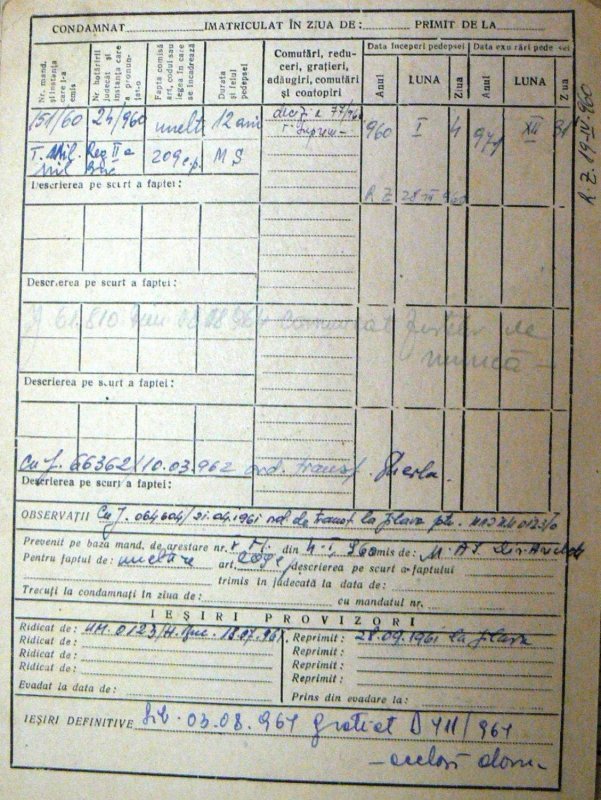 CONDAMNAT IMATRICULAT ÎN ZIUA DE: PRIMIT DE LA
Nr. mand. și instanța care l-a emis
Nr. hotărîrii judecăt. și instanța care a pronunțat-o
Fapta comisă art. codul sau legea în care se încadrează
Durata și felul pedepsei
Comutări, reduceri, grațieri, adăugiri, comutări și contopiri
Data începerii pedepsei
Data expirării pedepsei
Anul LUNA Ziua Anul LUNA Ziua
151/60 24/960 unelt 12 ani 960 I 4 XII 31
T. Mil. Reg II a 209 c.p. M S
R.Z. 19 IV 960
Descrierea pe scurt a faptei:
R Z 28 960
Descrierea pe scurt a faptei:
61.810 08 08 964 comunicat de
muncă
Descrierea pe scurt a faptei:
Cu J. 66362/10.03.962 ord. transf. Gherla.
Descrierea pe scurt a faptei:
OBSERVAȚII Cu J. 064604/21.04.1961 ord. de transf la Jilava ptr.
Prevenit pe baza mand. de arestare nr. din 4-1-960 emis de: M.A.I. Dir. Anchete
Pentru faptul de: uneltire art. 209 c.p. descrierea pe scurt a faptului
trimis în judecată la data de:
Trecuți la condamnați în ziua de: cu mandatul nr.
IEȘIRI PROVIZORII
Ridicat de: UM. 0123/H. Buc. 18.07.961 Reprimit: 28.09.1961 la Jilava
Ridicat de: Reprimit:
Ridicat de: Reprimit:
Ridicat de: Reprimit:
Evadat la data de: Prins din evadare la:
IEȘIRI DEFINITIVE Lib. 03.08.964 grațiat D 411/964
- același dom -